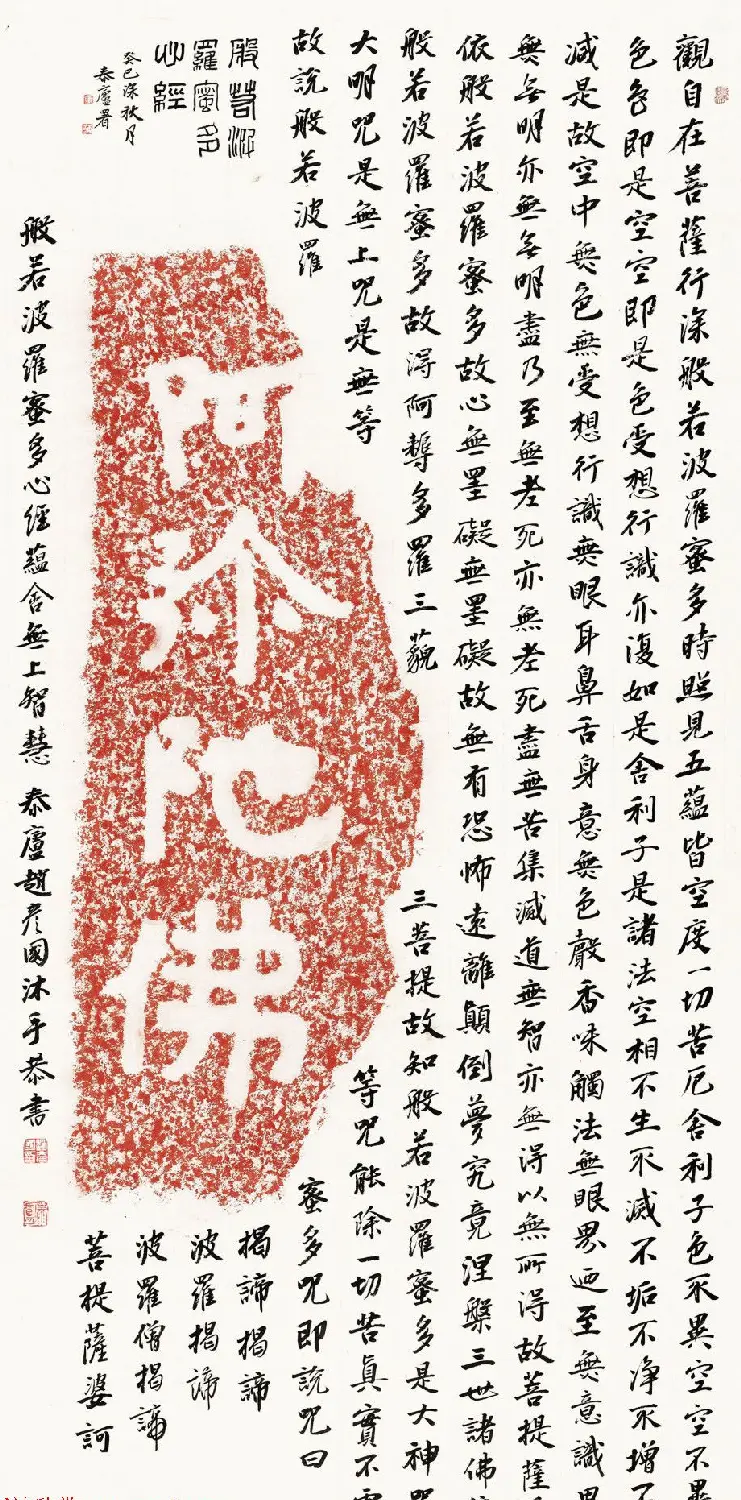 觀自在菩薩行深般若波羅蜜多時照見五蘊皆空度一切苦厄舍利子色不異空空不異
色色即是空空即是色受想行識亦復如是舍利子是諸法空相不生不滅不垢不淨不增不
減是故空中無色無受想行識無眼耳鼻舌身意無色聲香味觸法無眼界迺至無意識界
無無明亦無無明盡乃至無老死亦無老死盡無苦集滅道無智亦無得以無所得故菩提薩
依般若波羅蜜多故心無罣礙無罣礙故無有恐怖遠離顛倒夢究竟涅槃三世諸佛
般若波羅蜜多故得阿耨多羅三藐三菩提故知般若波羅蜜多是大神咒
大明咒是無上咒是無等等咒能除一切苦真實不虛
故說般若波羅蜜多咒即說咒曰
揭諦揭諦
波羅揭諦
波羅僧揭諦
菩提薩婆訶
般若波
羅蜜多
心經
癸巳深秋月
泰廬署
阿弥陀佛
般若波羅蜜多心經蘊含無上智慧 泰廬趙彥國沐手恭書